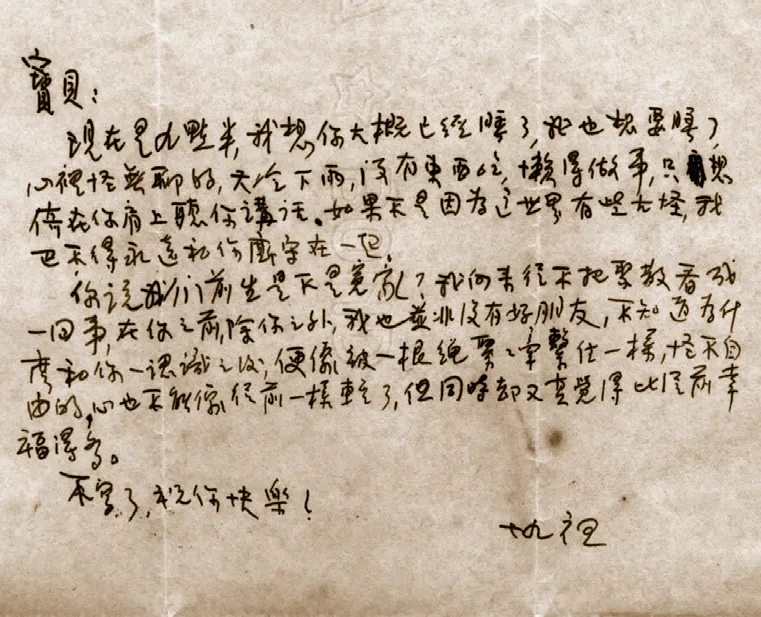 寶貝：
現在是九點半，我想你大概已經睡了，我也想要睡了，
心裡怪無聊的，天冷下雨，沒有東西吃，懶得做事，只想
倚在你肩上聽你講話。如果不是因為這世界有些古怪，我
巴不得永遠和你廝守在一起。
你說我們前生是不是冤家？我向來從不把聚散看成
一回事，在你之前，除你之外，我也並非沒有好朋友，不知道為什
麼和你一認識之後，便像被一根繩緊緊牽繫住一樣，怪不自
由的，心也不能像從前一樣輕了，但同時卻又真覺得比從前幸
福得多。
不寫了，祝你快樂！